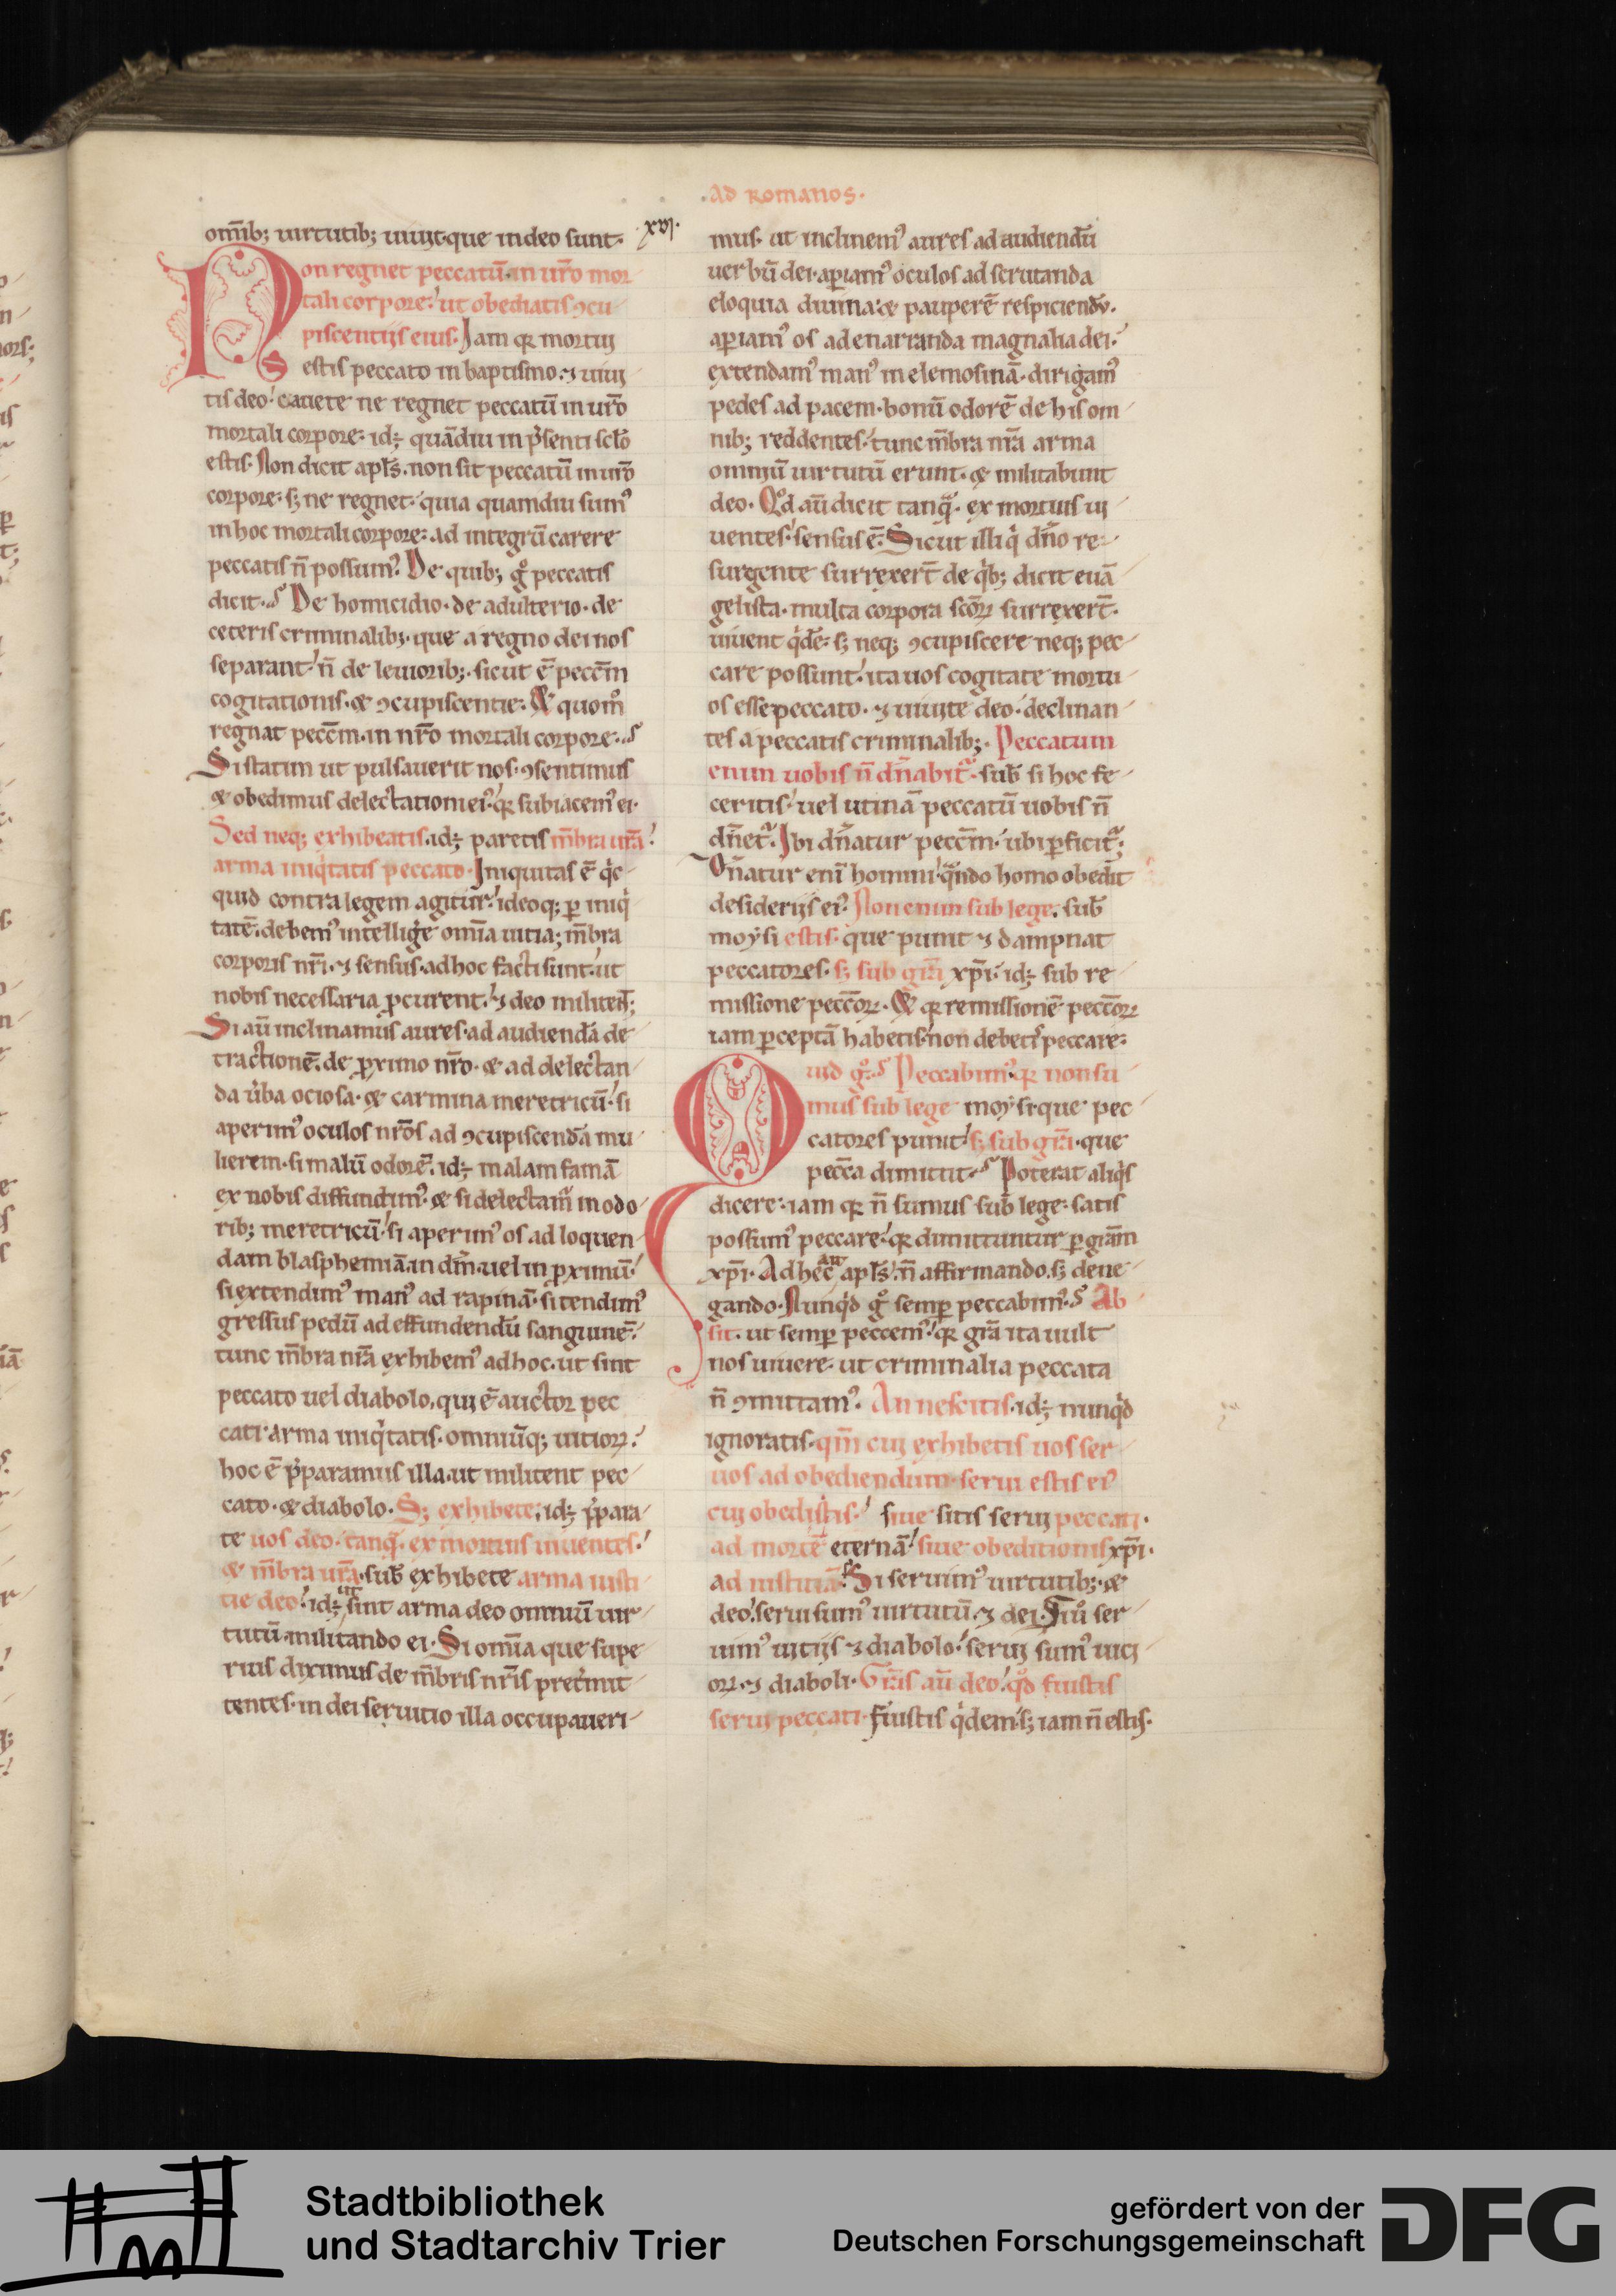 .ad romanos.
om̄ib; uirtutib; uiuit que in deo sunt.
.xvj.
Non regnet peccatū in ur̄o mor
tali corpore. ut obediatis ꝯcu
piscentijs eius. Jam qꝛ mortuj
estis peccato in baptismo. ⁊ uiuj
tis deo. cauete ne regnet peccatū in ur̄o
mortali corpore. id; quādiu in p̄senti sclo
estis. Non dicit apls̄. non sit peccatū in uro
corpore. s; ne regnet. quia quamdiu sumꝰ
in hoc mortali corpore. ad integrū carere
peccatis n̄ possumꝰ. De quib; gͦ peccatis
dicit. De homicidio. de adulterio. de
ceteris criminalib;. que a regno dei nos
separant. n̄ de leuiorib;. sicut ē pecc̄m
cogitationis. & ꝯcupiscentie. & quomͦ
regnat pecc̄m. in nr̄o mortali corpore.
Si statim ut pulsauerit nos. ꝯsentimus
& obedimus delectationi eiꝰ. qꝛ subiacemꝰ ei.
Sed neq; exhibeatis. id; paretis m̄bra ur̄a.
arma iniqitatis peccato. Jniquitas ē qic
quid contra legem agitur. ideoq; ꝑ iniqi
tatē. debemꝰ intelligere om̄ia uitia; m̄bra
corporis nr̄i. ⁊ sensus. ad hoc facti sunt. ut
nobis necessaria ꝓcurent. ⁊ deo militent;
Si aū inclinamus aures. ad audiendā de
tractionē. de ꝓximo nr̄o. & ad delectan
da uerba ociosa. & carmina meretricū. si
aperimꝰ oculos nr̄os ad ꝯcupiscendā mu
lierem. si malū odorē. id; malam famā
ex nobis diffundimꝰ. & si delectamur in odo
rib; meretricū. si aperimꝰ os ad loquen
dam blasphemiā. in dm̄ uel in ꝓximū.
si extendimꝰ manꝰ ad rapinā. si tendimꝰ
gressus pedū ad effundendū sanguinē.
tunc m̄bra nr̄a exhibemꝰ ad hoc. ut sint
peccato uel diabolo, qui ē auctor pec
cati. arma iniqitatis. omniūq; uitioꝝ.
hoc ē p̄paramus illa. ut militent pec
cato. & diabolo. S; exhibete. id; p̄para
te uos deo. tanq̄. ex mortuis uiuentes.
& m̄bra ur̄a. sub exhibete arma iusti
tie deo. id; ut sint arma deo omniū uir
tutū. militando ei. Si om̄ia que supe
rius diximus de m̄bris nr̄is pretermit
tentes. in dei seruitio illa occupaueri
mus. ut inclinemꝰ aures ad audiendū
uerbū dei. aperiamꝰ oculos ad scrutanda
eloquia diuina. & pauperē respiciendū.
aperiamꝰ os ad enarranda magnalia dei.
extendamꝰ manꝰ in elemosinā. dirigamꝰ
pedes ad pacem. bonū odorē de his om
nib; reddentes. tunc m̄bra nr̄a arma
omniū uirtutū erunt. & militabunt
deo. Qd̄ aū dicit tanq̄. ex mortuis ui
uentes. sensus ē. Sicut illi qi dn̄o re
surgente surrexert̄ de qib; dicit euā
gelista. multa corpora scōꝝ surrexert̄.
uiuent qidē. s; neq; ꝯcupiscere neq; pec
care possunt. ita uos cogitate mortu
os esse peccato. ⁊ uiuite deo. declinan
tes a peccatis criminalib;. Peccatum
enim uobis n̄ dn̄abitur. sub̄ si hoc fe
ceritis. uel utinā peccatū uobis n̄
dn̄etur. Jbi dn̄atur pecc̄m. ubi ꝑficitur;
Dn̄atur eni homini. qn̄do homo obedit
desiderijs eiꝰ. Non enim sub lege. sub̄
moẏsi estis. que punit ⁊ dampnat
peccatores. s; sub gra xp̄i. id; sub re
missione peccōꝝ. & qꝛ remissionē peccōꝝ
iam ꝑceptā habetis. non debetis peccare.
Quid gͦ. Peccabimꝰ. qꝛ non su
mus sub lege moẏsi. que pec
catores punit. s; sub gra. que
pecc̄a dimittit. Poterat aliqis
dicere. iam qꝛ n̄ sumus sub lege. satis
possumꝰ peccare. qꝛ dimittuntur ꝑ grām
xp̄i. Ad hec aū apls̄. n̄ affirmando. s; dene
gando. Nunqid gͦ semꝑ peccabimꝰ. Ab
sit. ut semꝑ peccemꝰ. qꝛ grā ita uult
nos uiuere. ut criminalia peccata
n̄ ꝯmittamꝰ. An nescitis. id; nunqid
ignoratis. qm̄ cui exhibetis uos ser
uos ad obediendum. serui estis eiꝰ
cui obedistis. siue sitis serui peccati.
ad mortē eternā. siue obeditionis xp̄i.
ad iustitiā. Si seruimꝰ uirtutib;. &
deo. serui sumꝰ uirtutū. ⁊ dei. Si uͦ ser
uimꝰ uitijs ⁊ diabolo. seruj sumꝰ uici
oꝝ. ⁊ diaboli. Grās aū deo. qd̄ fuistis
serui peccati. fuistis qidem. s; iam n̄ estis.
Stadtbibliothek
und Stadtarchiv Trier
gefördert von der
Deutschen Forschungsgemeinschaft
DFG